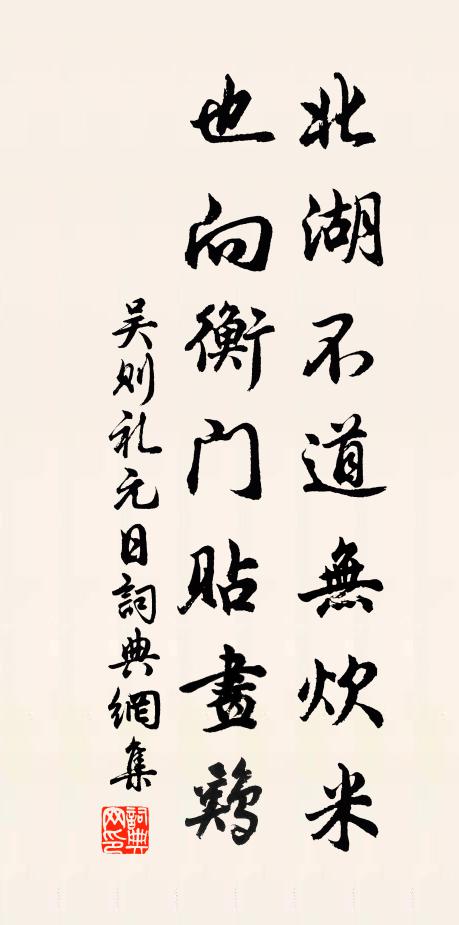 北湖不道無炊米
也向衡门貼畫鷄
吴则礼元日詞典網集
詞典網印